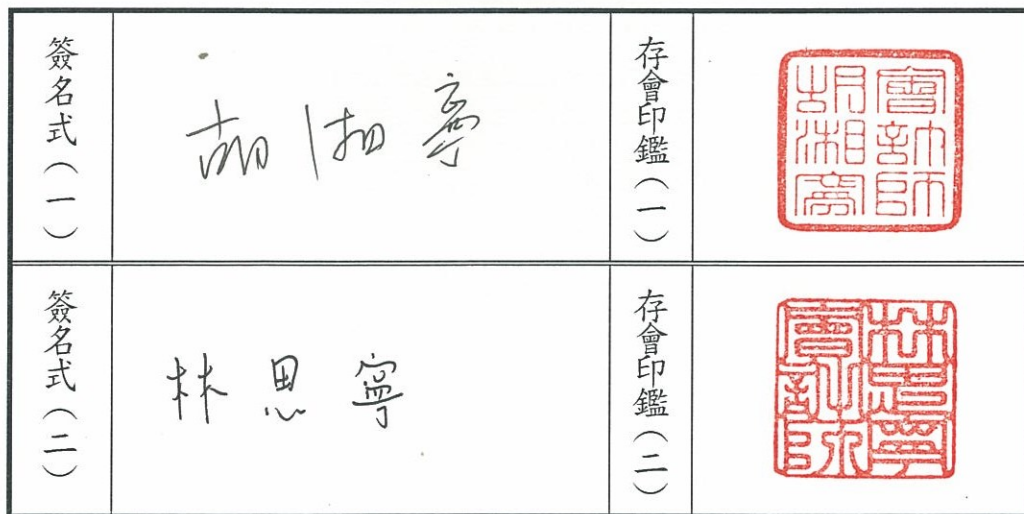 簽名式(一)
胡湘寧
存會印鑑(一)
會計師
胡湘寧
簽名式(二)
林思寧
存會印鑑(二)
林思寧
會計師